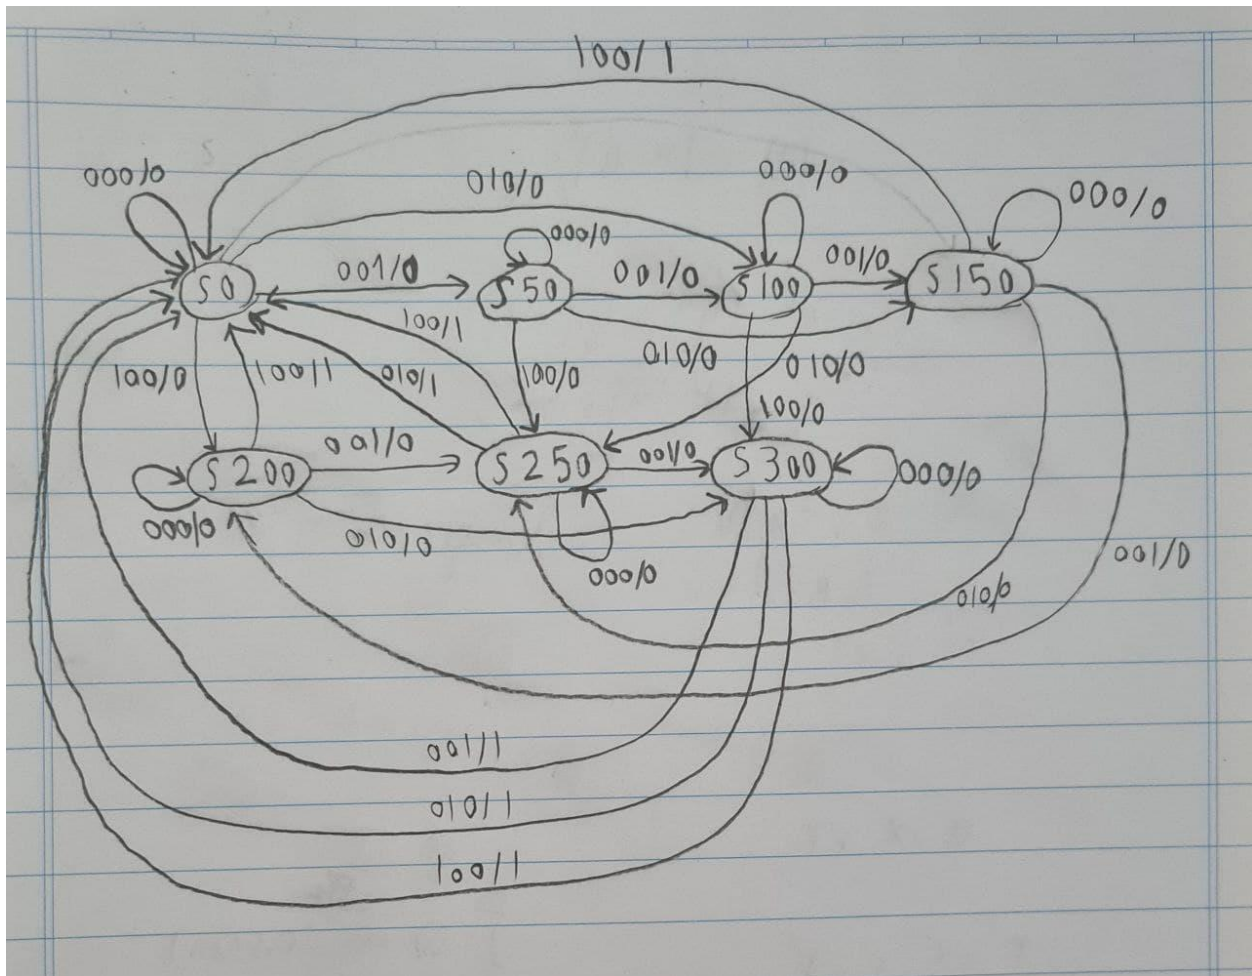 100/1
000/0
010/0
000/0
000/0
000/0
S0
001/0
S50
001/0
S100
001/0
S150
100/1
010/0
010/0
100/0
100/1
010/1
100/0
100/0
S200
001/0
S250
001/0
S300
000/0
000/0
010/0
000/0
001/0
010/0
001/1
010/1
100/1